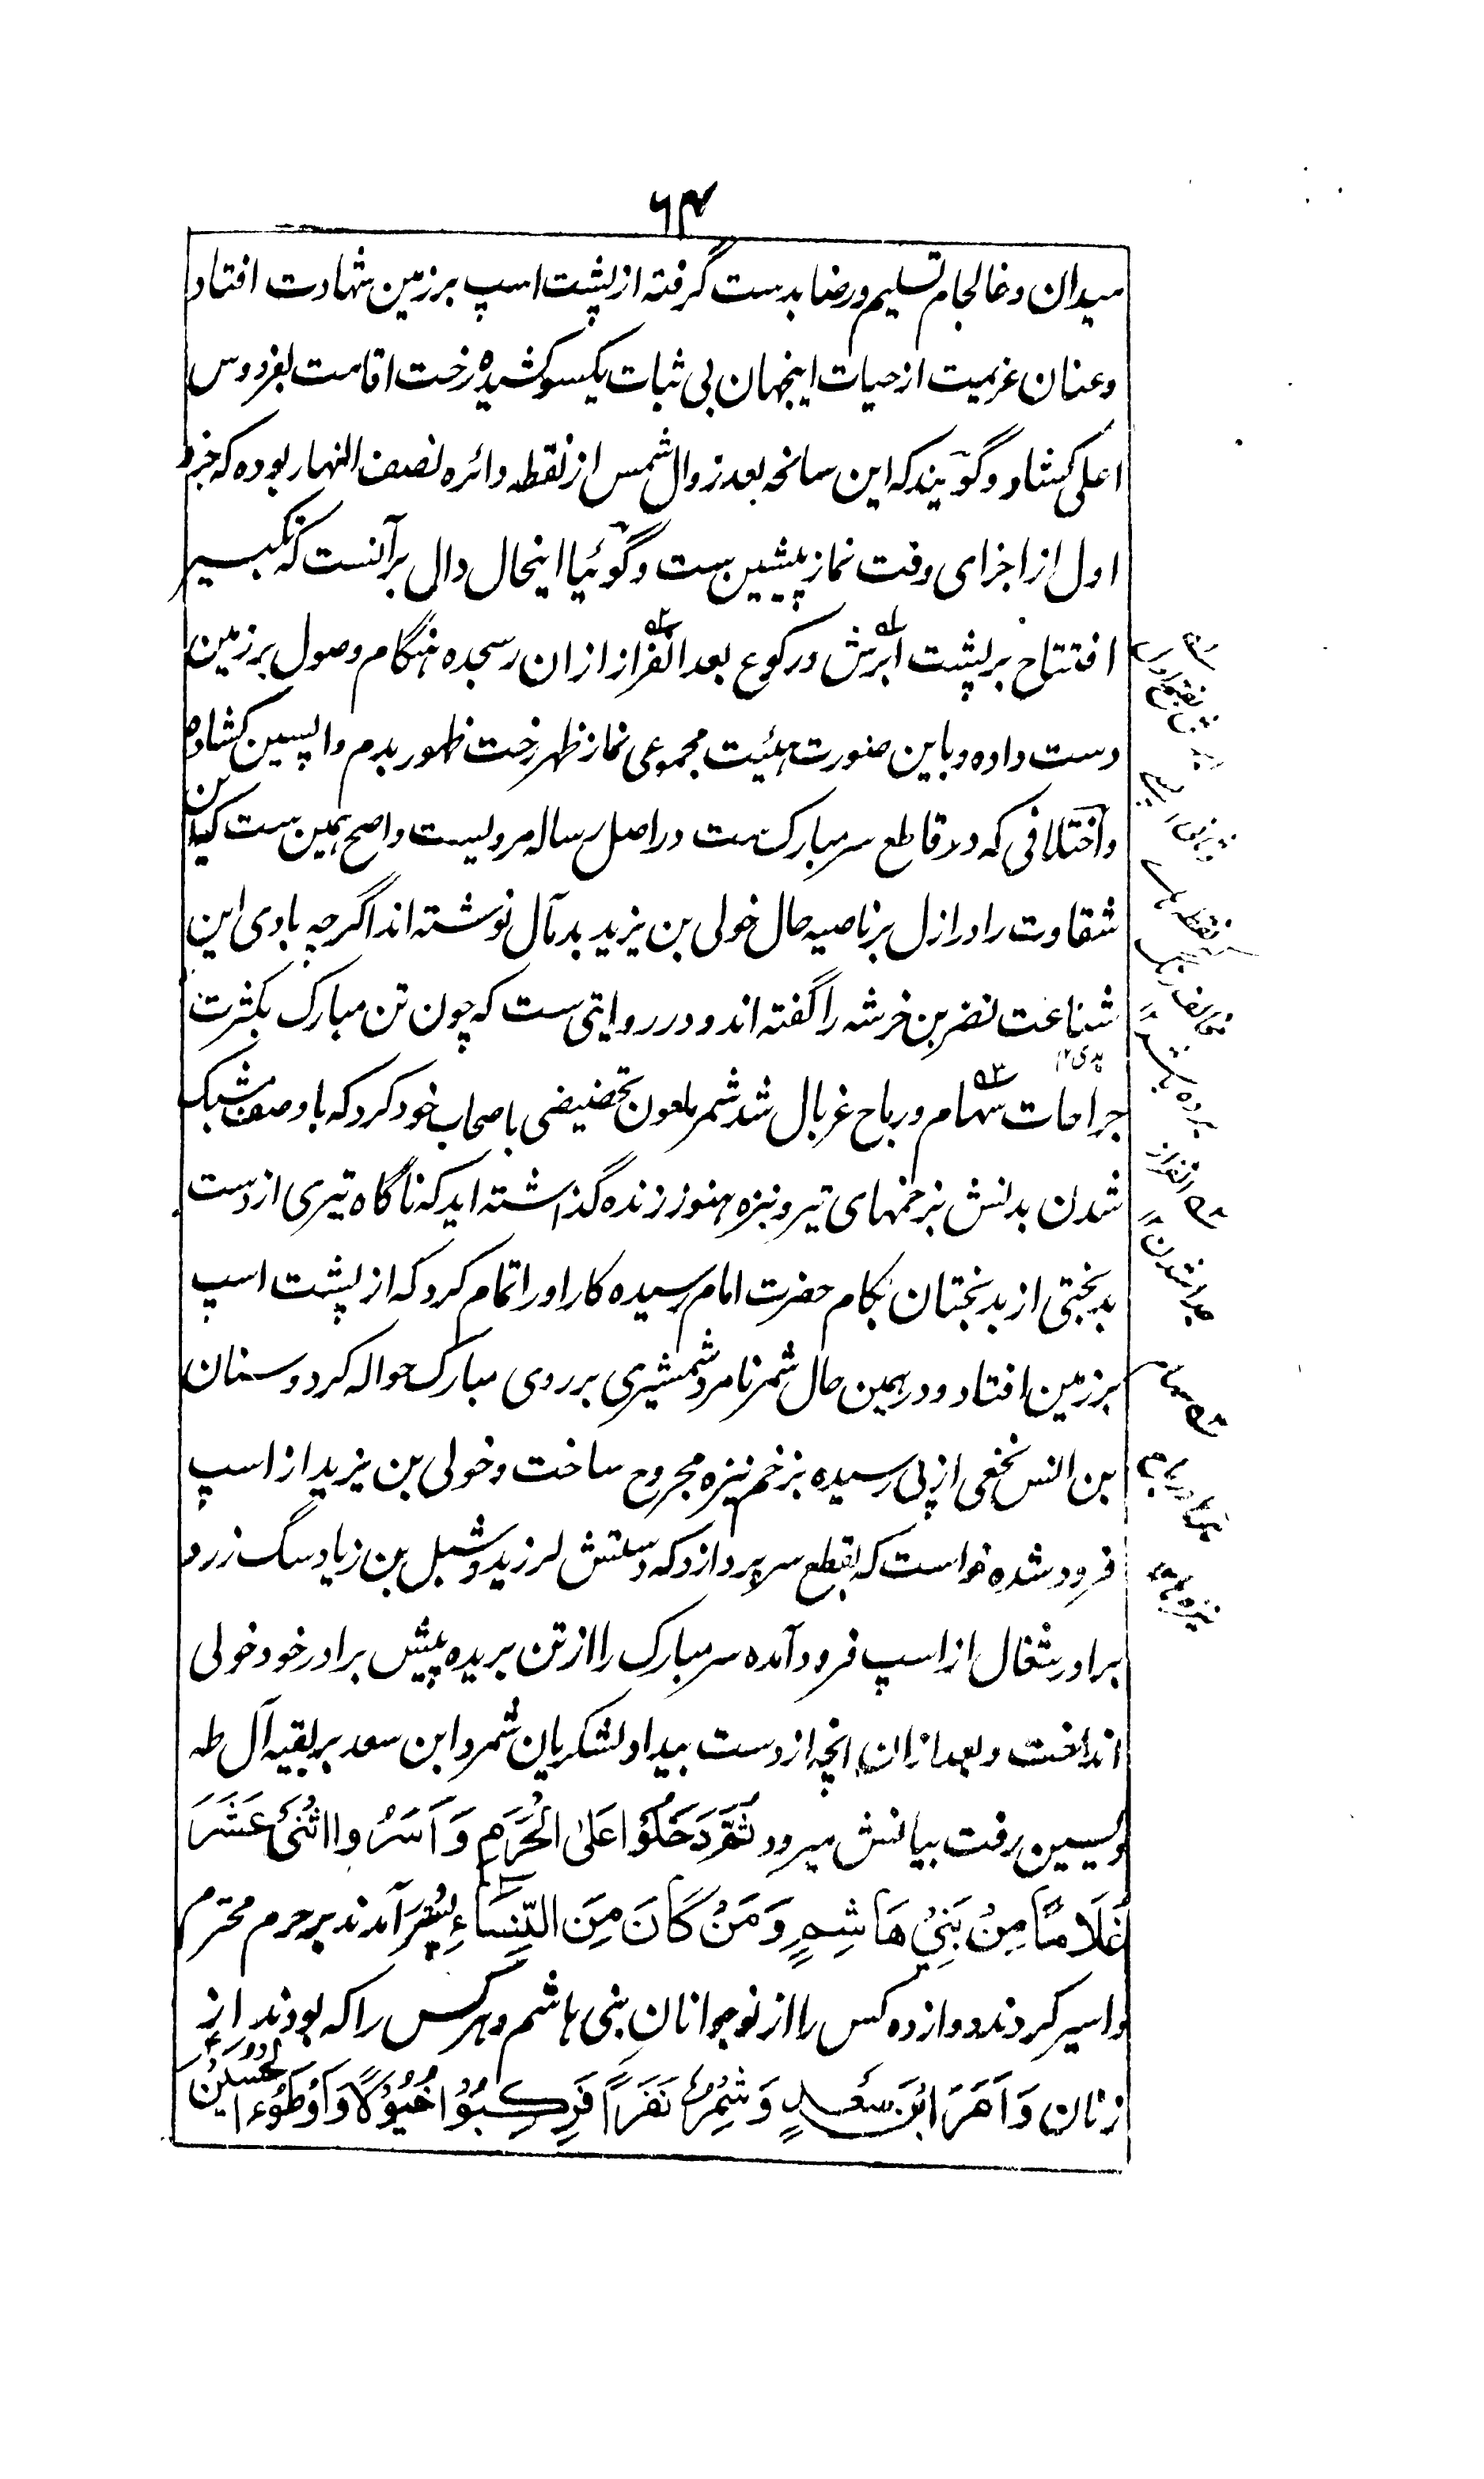 ۶۴
میدان وغا لجام تسلیم و رضا بدست گرفته از پشت اسپ بر زمین شهادت افتاد
و عنان عزیمت از حیات اینجهان بی ثبات یکسو کشیده رخت اقامت بفردوس
اعلی کشاد و گویند که این سانحه بعد زوال شمس از نقطه دائره نصف النهار بوده که جزء
اول از اجزای وقت نماز پیشین ست و گوئیا اینحال دال بر آنست که تکبیر
افتتاح بر پشت ابرش و رکوع بعد انفراز ازان و سجده هنگام وصول بر زمین
دست داده و باین صورت هیئت مجموعی نماز ظهر رخت ظهور بدم واپسین کشاده
و اختلافی که در قاطع سر مبارک ست در اصل رساله مرویست و اصح همین ست که این
شقاوت را در ازل بر ناصیه حال خولی بن یزید بدمآل نوشته اند اگرچه بادی این
شناعت نضر بن خرشه را گفته اند و در روایتی ست که چون تن مبارک بکثرت
جراحات سهام و رماح غربال شد شمر ملعون تحضیضی باصحاب خود کرد که باوصف مشبک
شدن بدنش بزخمهای تیر و نیزه هنوز زنده گذاشته اید که ناگاه تیری از دست
بدبختی از بدبختان بکام حضرت امام رسیده کار او را تمام کرد که از پشت اسپ
بر زمین افتاد و در همین حال شمر نامرد شمشیری بر روی مبارک حواله کرد و سنان
بن انس نخعی از پی رسیده بزخم نیزه مجروح ساخت و خولی بن یزید از اسپ
فرود شده خواست که بقطع سر پردازد که دستش لرزید و شبل بن زیاد سگ زرد
برادر شغال از اسپ فرود آمده سر مبارک را از تن بریده پیش برادر خود خولی
انداخت و بعد ازان انچه از دست بیداد لشکریان شمر و ابن سعد بر بقیه آل طه
و یسین رفت بیانش میرود ثُمَّ دَخَلُوْا عَلَی الْحَرَمِ وَ اَسَرُوا اثْنَیْ عَشَرَ
غُلَامًا مِنْ بَنِیْ هَاشِمٍ وَمَنْ کَانَ مِنَ النِّسَاءِ پستر آمدند بر حرم محترم
و اسیر کردند دوازده کس را از نوجوانان بنی هاشم و هر کس را که بودند از
زنان وَ اَمَرَ ابْنُ سَعْدٍ وَ شِمْرٌ نَفَرًا فَرَکِبُوْا خُیُوْلًا وَ اَوْطَوُء الحسین
انفراز
جدا شدن ۱۲
سهام
نیزه ها ۱۲